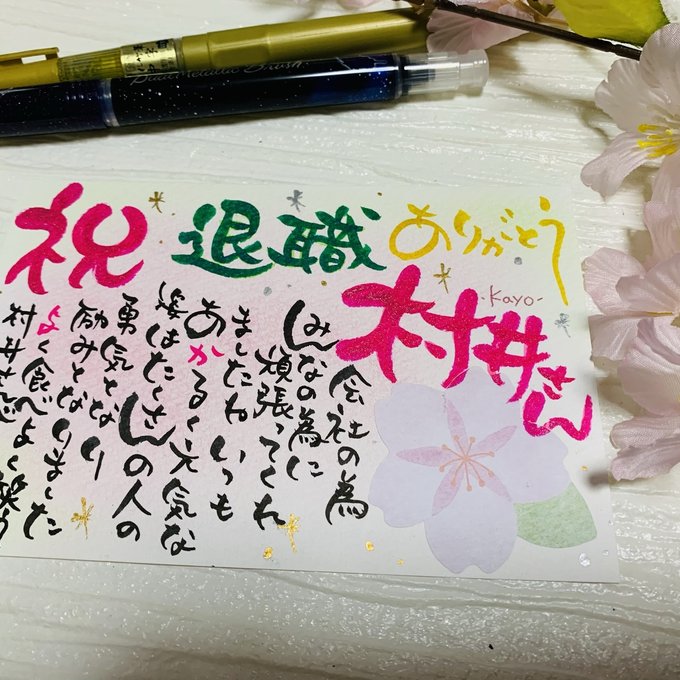 Dual Metallic Brush
祝 退職 ありがとう
-Kayo-
村井さん
会社の為
みんなの為に
頑張ってくれ
ましたね いつも
あかるく元気な
姿はたくさんの人の
勇気となり
励みとなりました
よく食べよく笑う
村井さんで